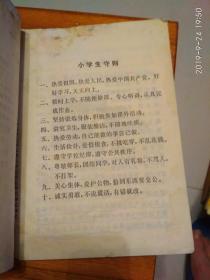 小学生守则
一、热爱祖国，热爱人民，热爱中国共产党。好
好学习，天天向上。
二、按时上学，不随便缺课。专心听讲，认真完
成作业。
三、坚持锻炼身体，积极参加课外活动。
四、讲究卫生，服装整洁，不随地吐痰。
五、热爱劳动，自己能做的事自己做。
六、生活俭朴，爱惜粮食，不挑吃穿，不乱花钱。
七、遵守学校纪律，遵守公共秩序。
八、尊敬师长，团结同学，对人有礼貌，不骂人，
不打架。
九、关心集体，爱护公物，拾到东西要交公。
十、诚实勇敢，不说谎话，有错就改。
2019-9-24